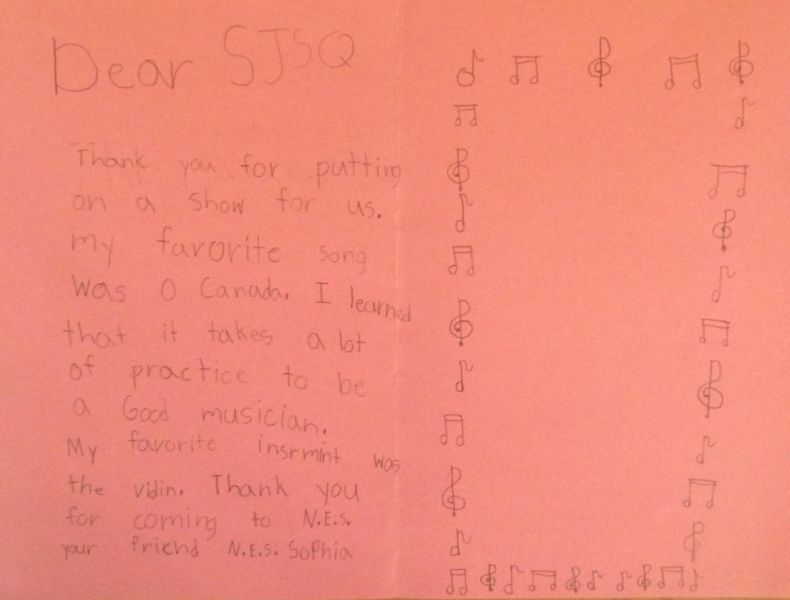 Dear SJSQ
Thank you for putting
on a show for us.
my favorite song
was O Canada. I learned
that it takes a lot
of practice to be
a Good musician.
My favorite insrmint was
the vidin. Thank you
for coming to N.E.S.
your friend N.E.S. Sophia